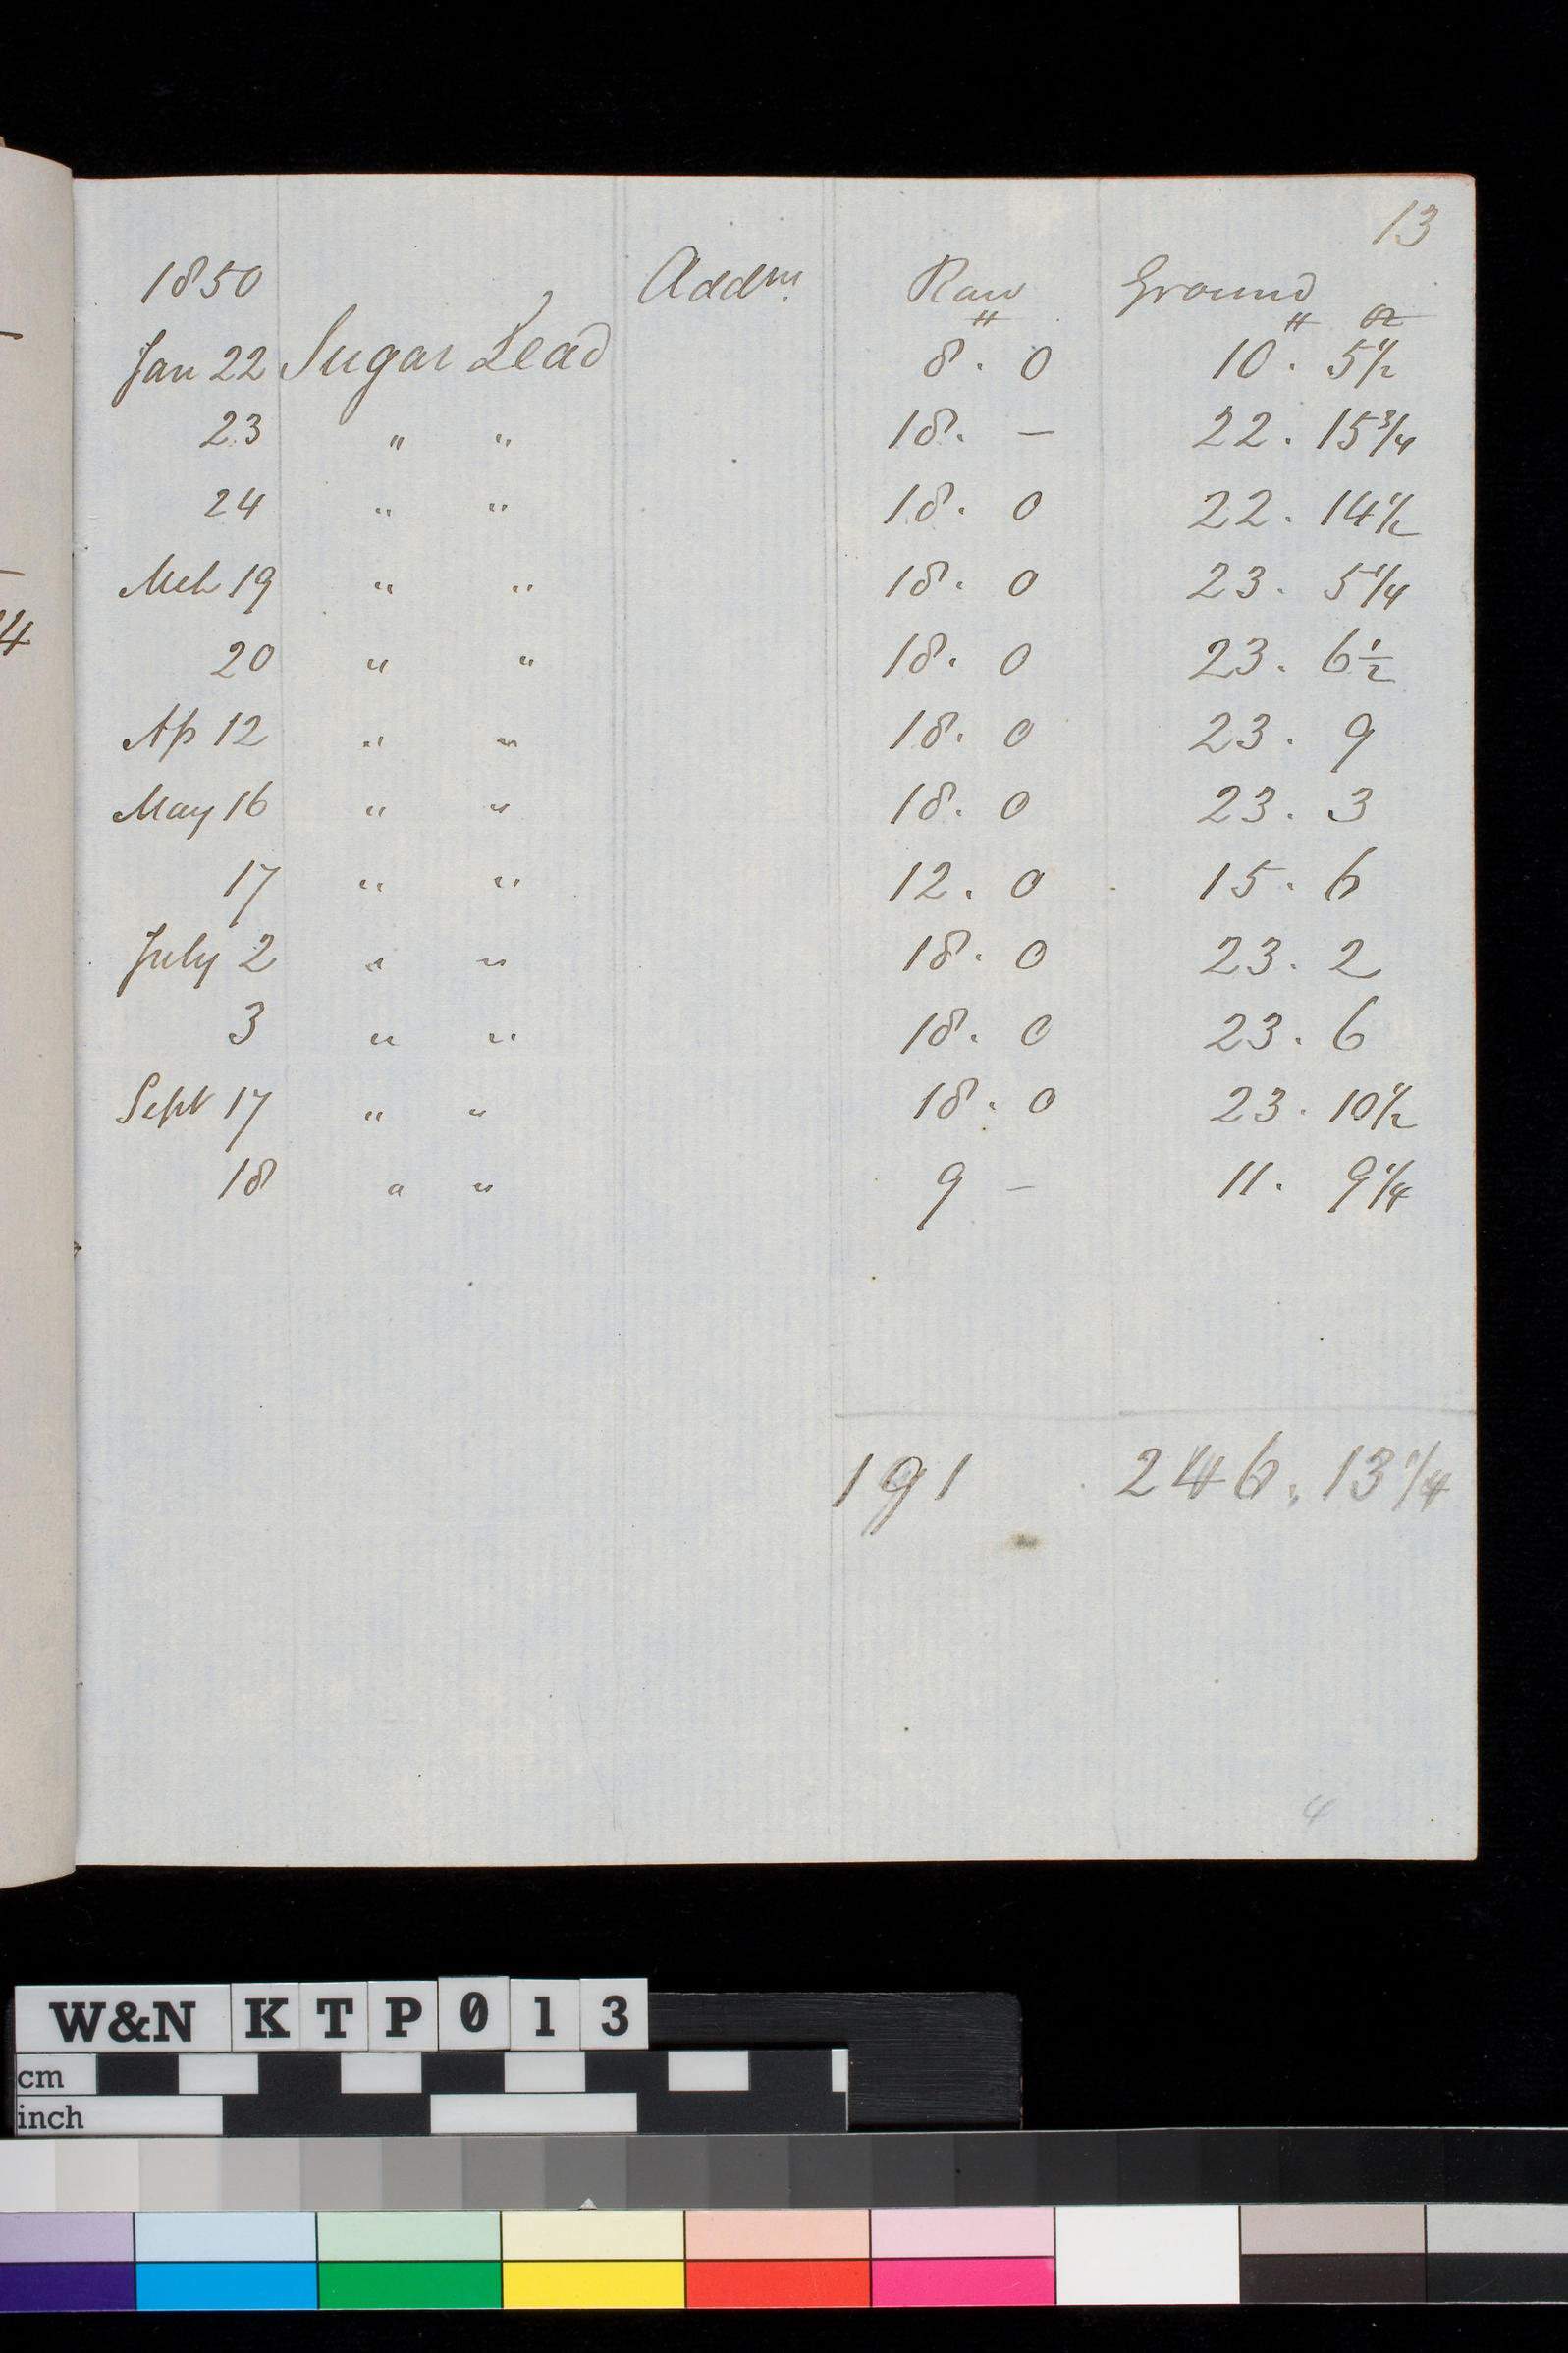 13
1850 Addns. Raw Ground
lb lb oz
Jan 22 Sugar Lead 8 . 0 10 . 5 1/2
23 " " 18 . — 22 . 15 3/4
24 " " 18 . 0 22 . 14 1/2
Mch 19 " " 18 . 0 23 . 5 1/4
20 " " 18 . 0 23 . 6 1/2
Ap 12 " " 18 . 0 23 . 9
May 16 " " 18 . 0 23 . 3
17 " " 12 . 0 15 . 6
July 2 " " 18 . 0 23 . 2
3 " " 18 . 0 23 . 6
Sept 17 " " 18 . 0 23 . 10 1/2
18 " " 9 — 11 . 9 1/4
191 246 . 13 1/4
4
W&N KTP013
cm
inch